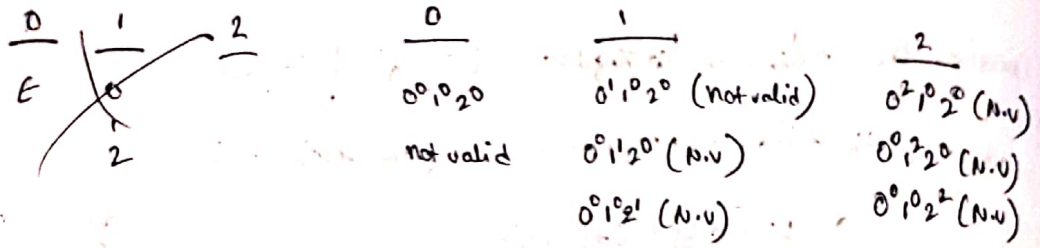 0 1 2
ϵ 0
1
2
0
0⁰1⁰2⁰
not valid
1
0¹1⁰2⁰ (not valid)
0⁰1¹2⁰ (N.V)
0⁰1⁰2¹ (N.V)
2
0²1⁰2⁰ (N.V)
0⁰1²2⁰ (N.V)
0⁰1⁰2² (N.V)